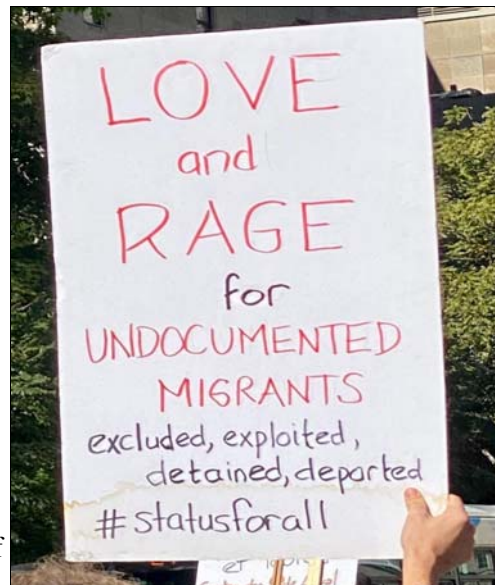 LOVE
and
RAGE
for
UNDOCUMENTED
MIGRANTS
excluded, exploited,
detained, deported
#statusforall